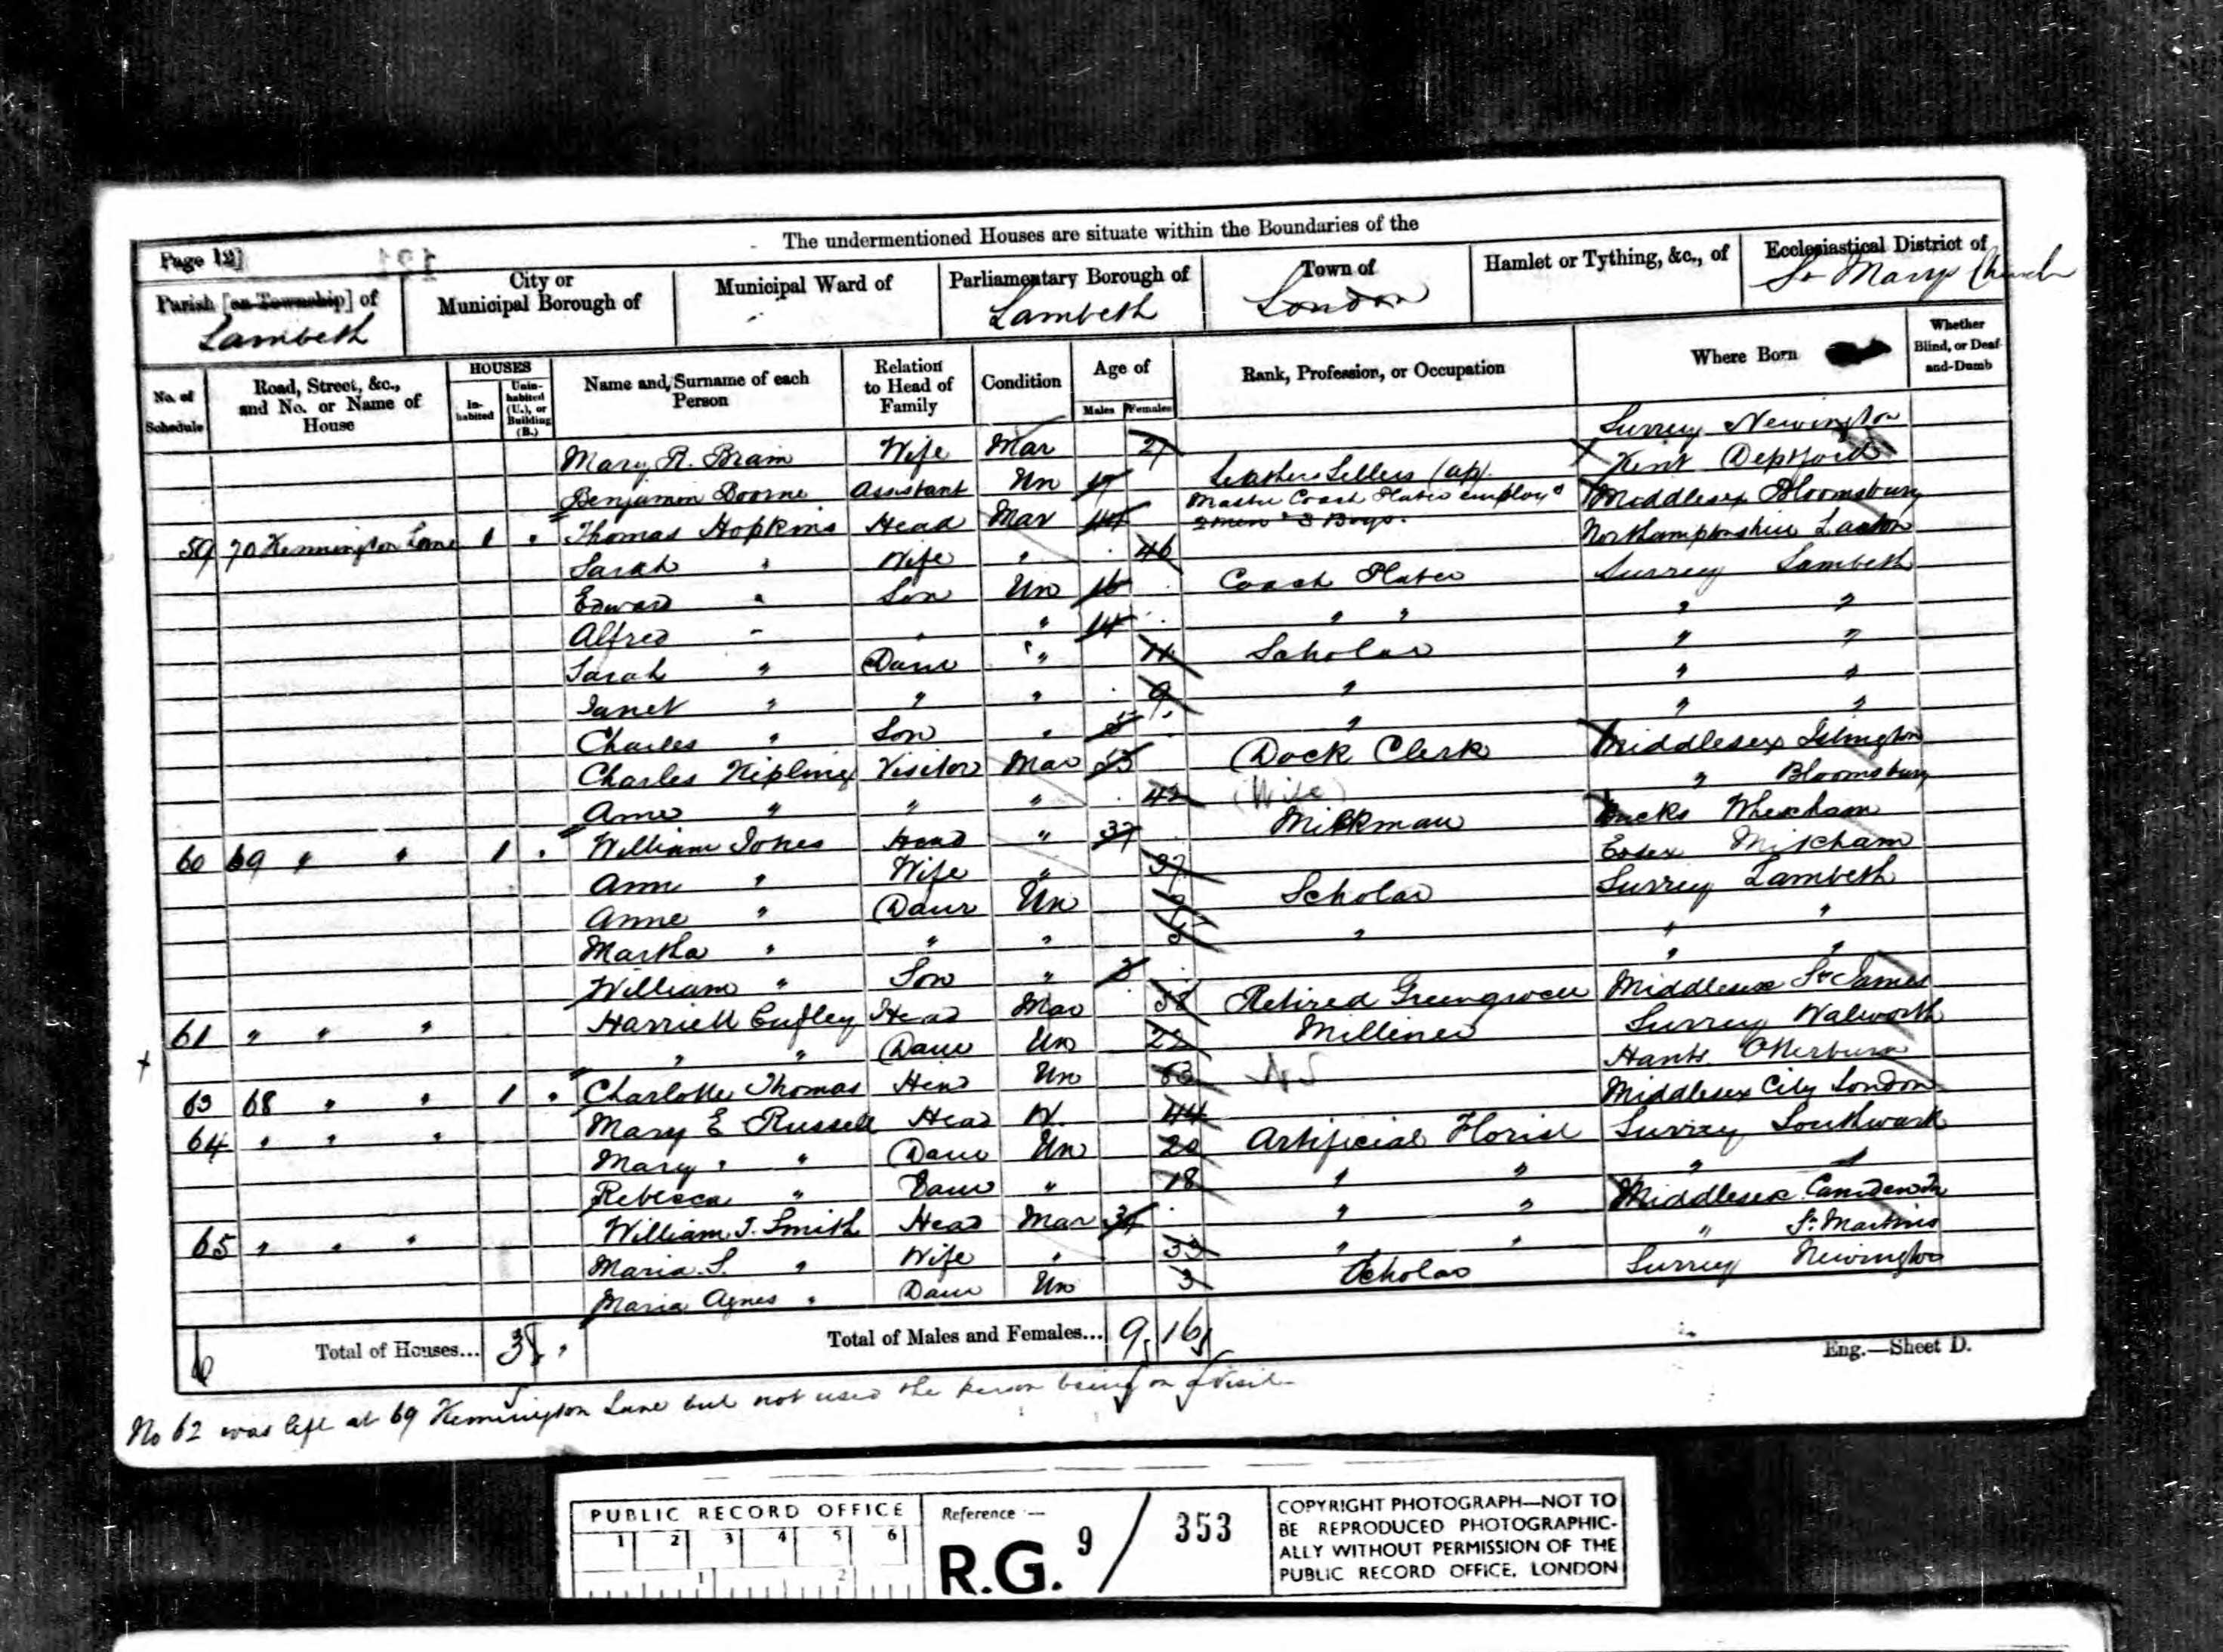 The undermentioned Houses are situate within the Boundaries of the
Page 12]
121
Parish [or Township] of
Lambeth
City or Municipal Borough of
Municipal Ward of
Parliamentary Borough of
Lambeth
Town of
London
Hamlet or Tything, &c., of
Ecclesiastical District of
St Marys Church
No. of Schedule
Road, Street, &c., and No. or Name of House
HOUSES
In-habited
Unin-habited (U.), or Building (B.)
Name and Surname of each Person
Relation to Head of Family
Condition
Age of
Males Females
Rank, Profession, or Occupation
Where Born
Whether Blind, or Deaf-and-Dumb
Mary A. Bram Wife Mar 27 Surrey Newington
Benjamin Boorne Assistant Un 17 Leather Sellers (ap). Kent Deptford
59 70 Kennington Lane 1 Thomas Hopkins Head Mar 44 Master Coach Plater employg 2 men & 3 Boys. Middlesex Bloomsbury
Sarah " Wife " 46 Northamptonshire Laxton
Edward " Son Un 16 Coach Plater Surrey Lambeth
Alfred " " " 14 " " " "
Sarah " Daur " 11 Scholar " "
Janet " " " 9 " " "
Charles " Son " 5 " " "
Charles Kipling Visitor Mar 53 Dock Clerk Middlesex Islington
Anne " " " 42 (Wife) " Bloomsbury
60 69 " " 1 William Jones Head " 37 Milkman Bucks Whexham
Ann " Wife " 37 Essex Mitcham
Anne " Daur Un 9 Scholar Surrey Lambeth
Martha " " " 5 " " "
William " Son " 3 " "
61 " " " Harriett Cufley Head Mar 58 Retired Greengrocer Middlesex St James
" " Daur Un 22 Milliner Surrey Walworth
63 68 " " 1 Charlotte Thomas Head Un 63 NS Hants Otterburn
64 " " " Mary E Russell Head W. 44 Middlesex City London
Mary " " Daur Un 20 Artificial Florist Surrey Southwark
Rebecca " Daur " 18 " " " "
65 " " " William J. Smith Head Mar 34 " " Middlesex Camden Tn
Maria S. " Wife " 33 " " " St Martins
Maria Agnes " Daur Un 3 Scholar Surrey Newington
Total of Houses... 3
Total of Males and Females... 9 16
Eng.—Sheet D.
No 62 was left at 69 Kennington Lane but not used the person being on a visit
PUBLIC RECORD OFFICE
1 2 3 4 5 6
1 2
Reference :—
R.G. 9 / 353
COPYRIGHT PHOTOGRAPH—NOT TO
BE REPRODUCED PHOTOGRAPHIC-
ALLY WITHOUT PERMISSION OF THE
PUBLIC RECORD OFFICE, LONDON